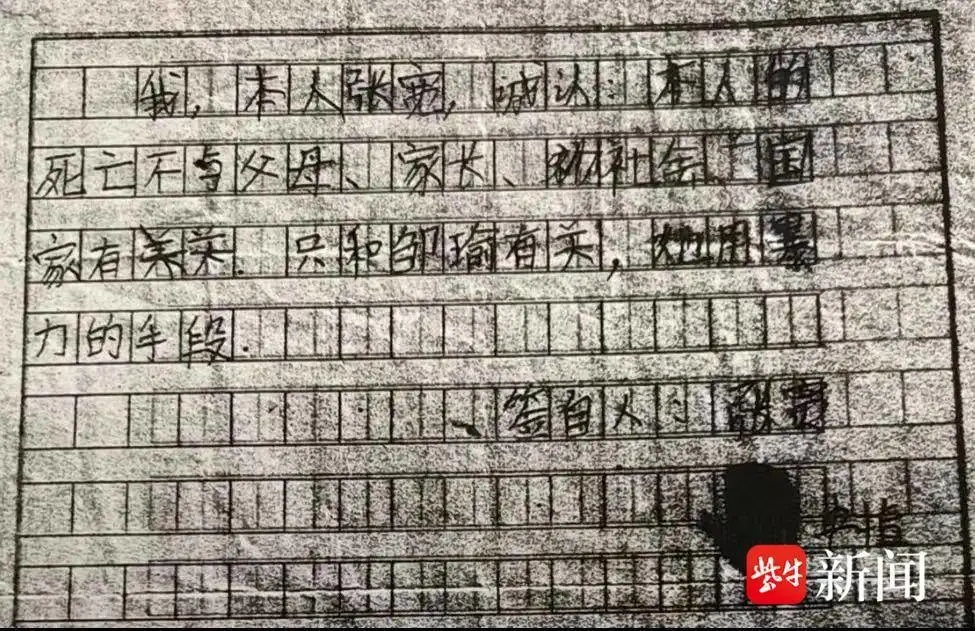 我，本人张宽，诚认：本人的
死亡不与父母、家长、和社会、国
家有关. 只和邹瑜有关，她用暴
力的手段.
签自人：张宽
紫牛新闻